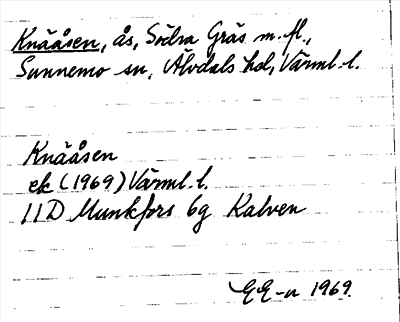 Knääsen, ås, Södra Gräs m. fl.,
Sunnemo sn, Älvdals hd, Värml. l.
Knääsen
ek (1969) Värml. l.
11D Munkfors 6g Kalven
EE-n 1969.